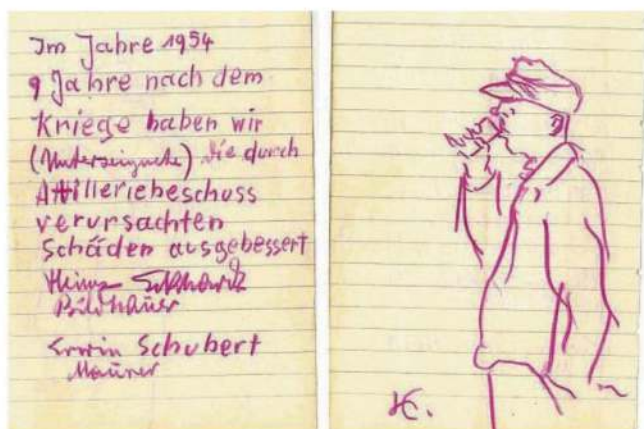 Im Jahre 1954
9 Jahre nach dem
Kriege haben wir
(Unterzeignete) die durch
Attilleriebeschuss
verursachten
Schäden ausgebessert
Heinz
Bildhauer
Erwin Schubert
Maurer